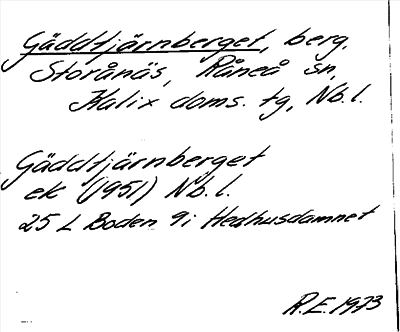 Gäddtjärnberget, berg,
Storånäs, Råneå sn,
Kalix doms. tg, Nb.l.
Gäddtjärnberget
ek (1951) Nb.l.
25 L Boden 9i Hedhusdamnet
R.E. 1973